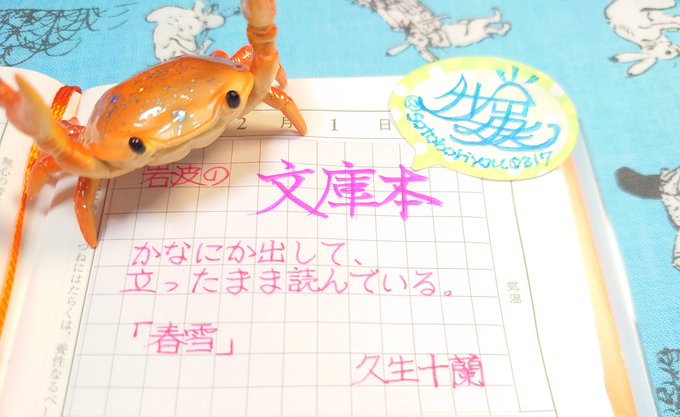 2月1日
岩波の 文庫本
かなにか出して、
立ったまま読んでいる。
「春雪」
久生十蘭
気温
つねにはたらくは、養性なるべ
@Sotoboriyou0217